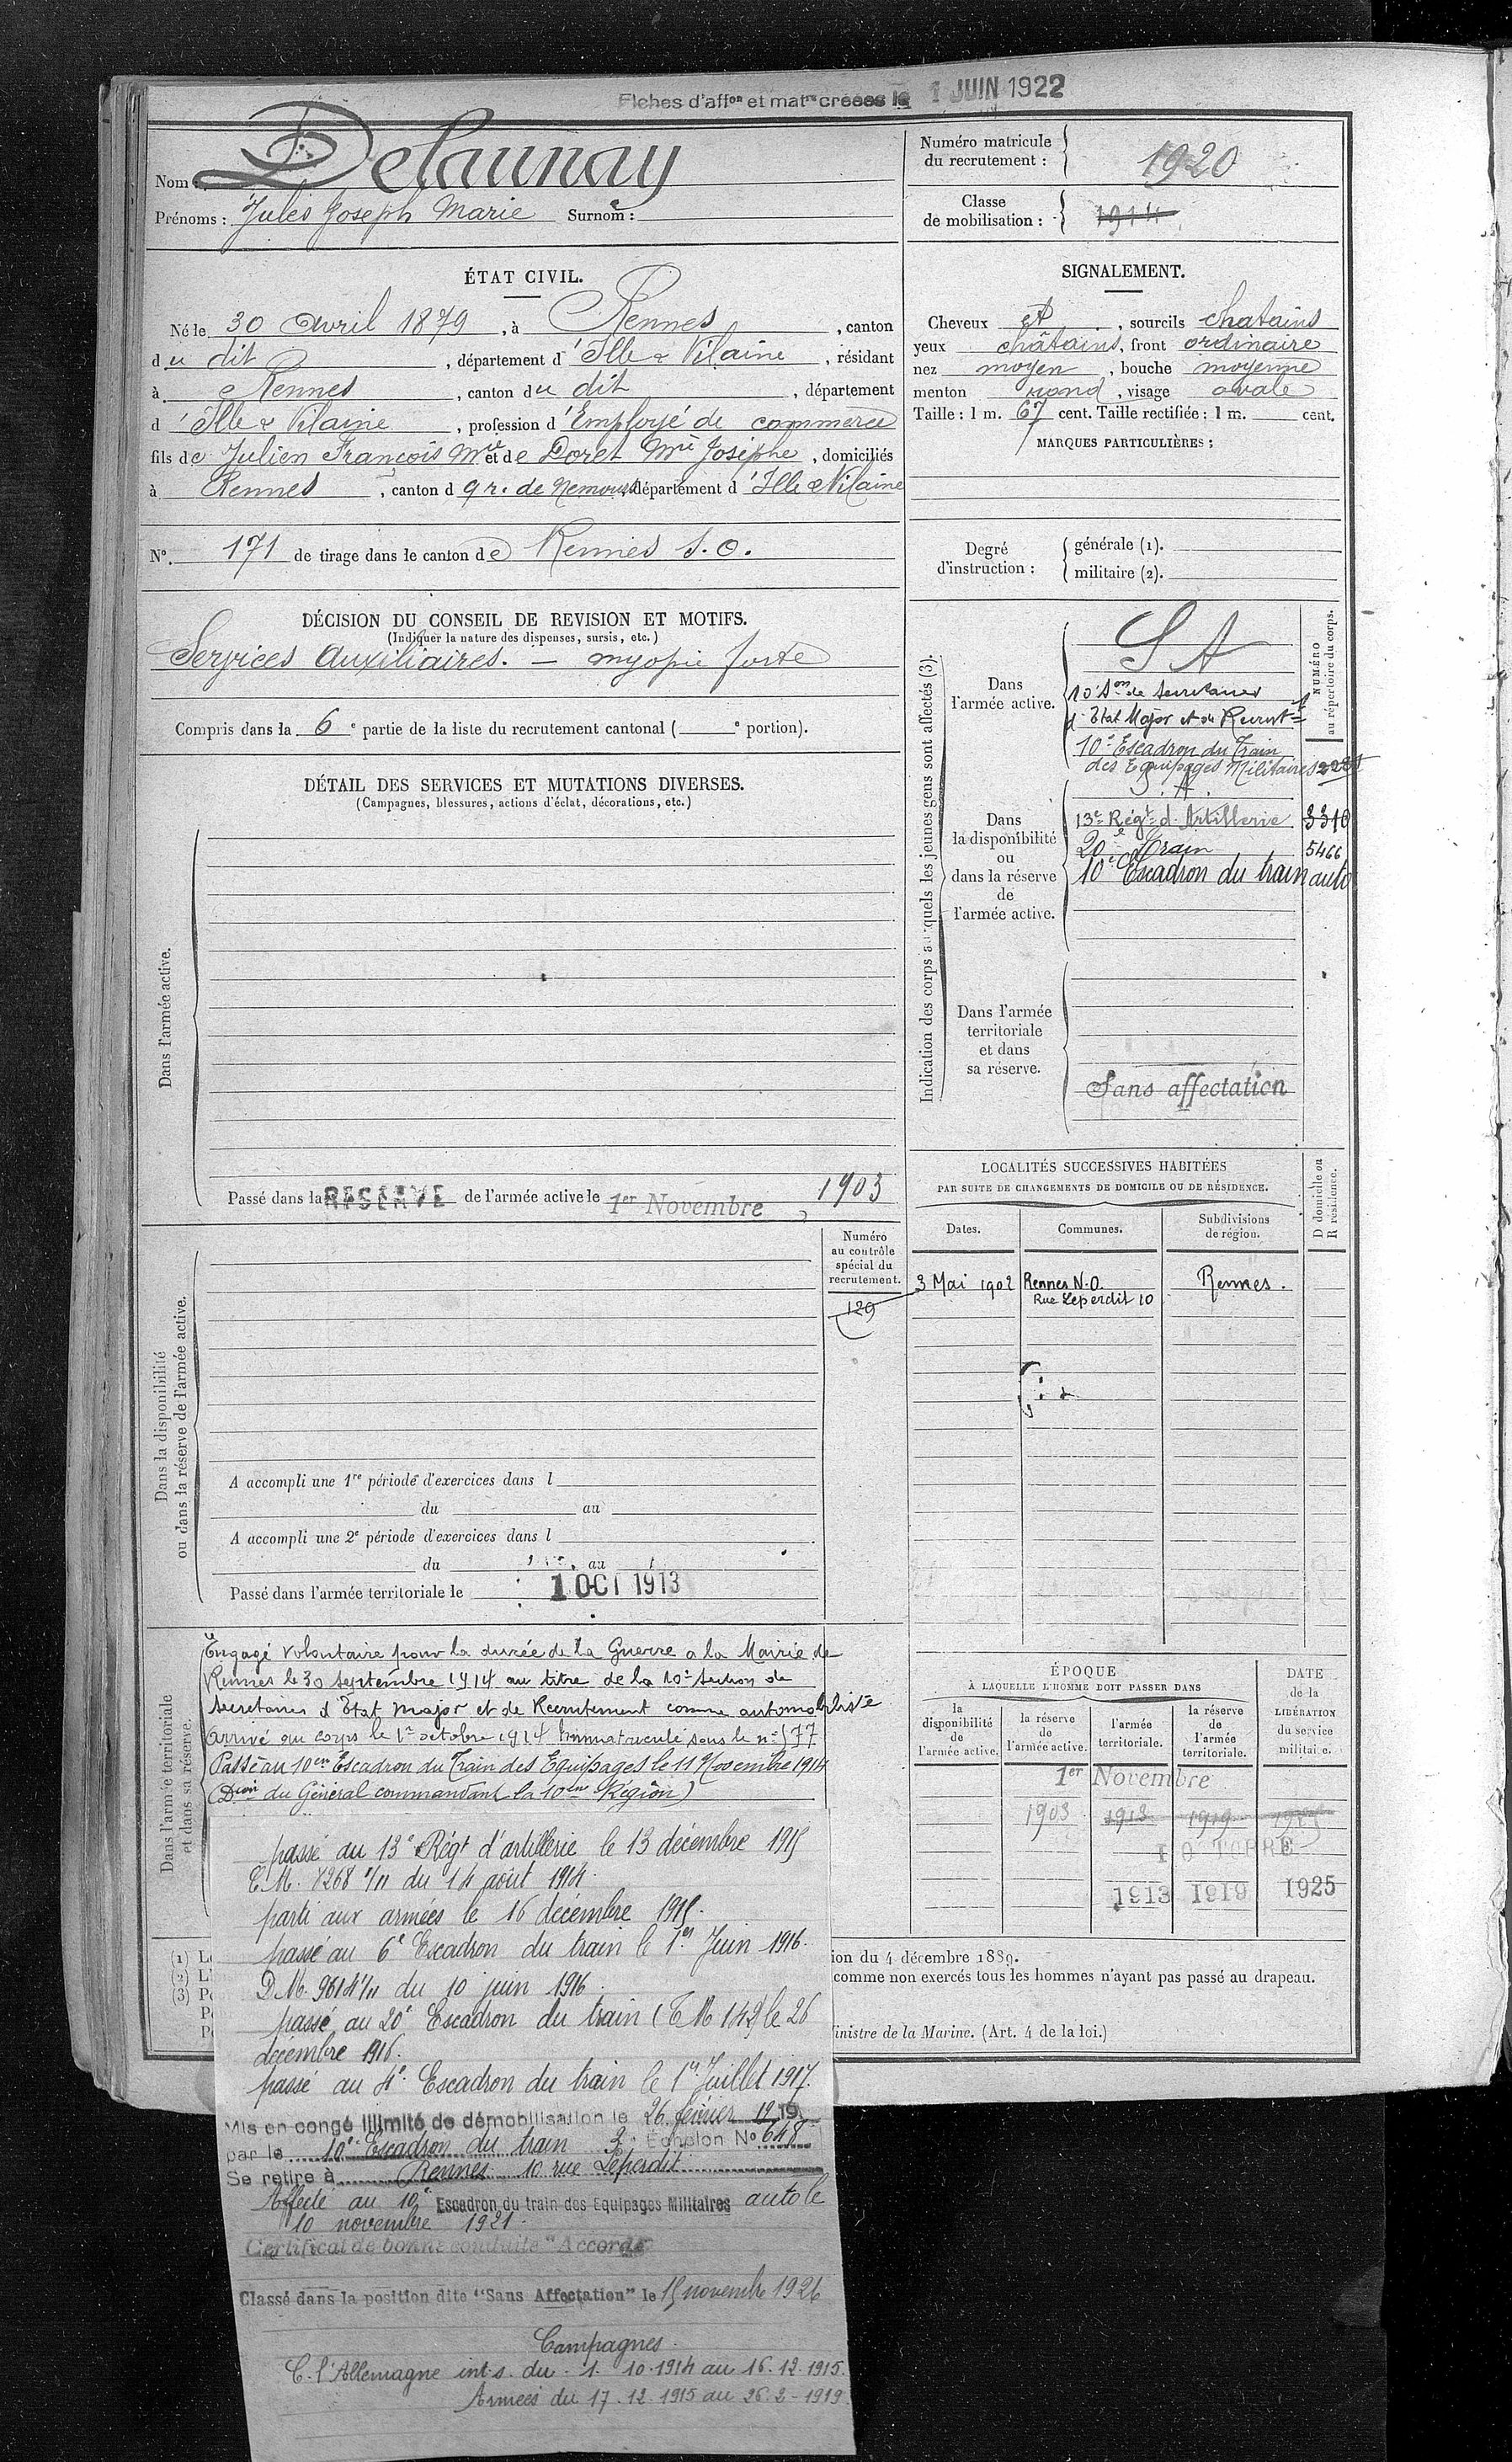 Fiches d'affon et matre créées le 1 JUIN 1922
Nom : Delaunay
Prénoms : Jules Joseph Marie Surnom :
Numéro matricule
du recrutement :
1920
Classe
de mobilisation :
1914
ÉTAT CIVIL.
Né le 30 Avril 1879, à Rennes, canton
du dit, département d'Ille & Vilaine, résidant
à Rennes, canton du dit, département
d'Ille & Vilaine, profession d'Employé de commerce
fils de Julien François Mie et de Doret Mie Josèphe, domiciliés
à Rennes, canton d gr. de Nemours département d'Ille & Vilaine
N° 171 de tirage dans le canton de Rennes S.O.
DÉCISION DU CONSEIL DE REVISION ET MOTIFS.
(Indiquer la nature des dispenses, sursis, etc.)
Services Auxiliaires. — myopie forte
Compris dans la 6e partie de la liste du recrutement cantonal ( e portion).
SIGNALEMENT.
Cheveux et, sourcils chatains
yeux châtains, front ordinaire
nez moyen, bouche moyenne
menton rond, visage ovale
Taille : 1 m. 67 cent. Taille rectifiée : 1 m. cent.
MARQUES PARTICULIÈRES :
Degré
d'instruction :
générale (1).
militaire (2).
Indication des corps auxquels les jeunes gens sont affectés (3).
NUMÉRO
au répertoire du corps.
Dans
l'armée active.
S A
10e Son de Secretaires
d'Etat Major et de Recrutt
10e Escadron du Train
des Equipages Militaires
S. A.
Dans
la disponibilité
ou
dans la réserve
de
l'armée active.
13e Régt d'Artillerie 3310
20e Train 5466
10e Escadron du train auto
Dans l'armée
territoriale
et dans
sa réserve.
Sans affectation
DÉTAIL DES SERVICES ET MUTATIONS DIVERSES.
(Campagnes, blessures, actions d'éclat, décorations, etc.)
Dans l'armée active.
Passé dans la RÉSERVE de l'armée active le 1er Novembre 1903
LOCALITÉS SUCCESSIVES HABITÉES
PAR SUITE DE CHANGEMENTS DE DOMICILE OU DE RÉSIDENCE.
D domicile ou
R résidence.
Dates.
Communes.
Subdivisions
de région.
3 Mai 1902 Rennes N.O. Rennes.
Rue Leperdit 10
Numéro
au contrôle
spécial du
recrutement.
129
Dans la disponibilité
ou dans la réserve de l'armée active.
A accompli une 1re période d'exercices dans l
du au
A accompli une 2e période d'exercices dans l
du au
Passé dans l'armée territoriale le 1 OCT 1913
Dans l'armée territoriale
et dans sa réserve.
Engagé volontaire pour la durée de la Guerre a la Mairie de
Rennes le 30 septembre 1914 au titre de la 10e Section de
Secretaires d'Etat Major et de Recrutement comme automobiliste
Arrivé au corps le 1er octobre 1914 Immatriculé sous le n° 577
Passé au 10em Escadron du Train des Equipages le 11 Novembre 1914
(Dion du Général commandant la 10eme Région)
passé au 13e Régt d'artillerie le 13 décembre 1915
C.M. 8268 1/11 du 14 août 1914.
parti aux armées le 16 décembre 1915.
passé au 6e Escadron du train le 1er Juin 1916.
D.M. 9614 1/11 du 10 juin 1916.
passé au 20e Escadron du train (T M 142) le 26
décembre 1916.
passé au 4e Escadron du train le 1er Juillet 1917.
Mis en congé illimité de démobilisation le 26 février 1919
par le 10e Escadron du train 3e Echelon N° 648
Se retire à Rennes 10 rue Leperdit
Affecté au 10e Escadron du train des Equipages Militaires auto le
10 novembre 1921.
Certificat de bonne conduite "Accordé"
Classé dans la position dite "Sans Affectation" le 15 novembre 1926
Campagnes.
C. l'Allemagne int.s. du 1. 10.1914 au 16.12.1915.
Armées du 17.12.1915 au 26.2-1919
ÉPOQUE
À LAQUELLE L'HOMME DOIT PASSER DANS
DATE
de la
LIBÉRATION
du service
militaire.
la
disponibilité
de
l'armée active.
la réserve
de
l'armée active.
l'armée
territoriale.
la réserve
de
l'armée
territoriale.
1er Novembre
1903 1913 1919 1925
1 OCTOBRE
1913 1919 1925
(1) L
(2) L'
(3) P
ion du 4 décembre 1889.
comme non exercés tous les hommes n'ayant pas passé au drapeau.
inistre de la Marine. (Art. 4 de la loi.)